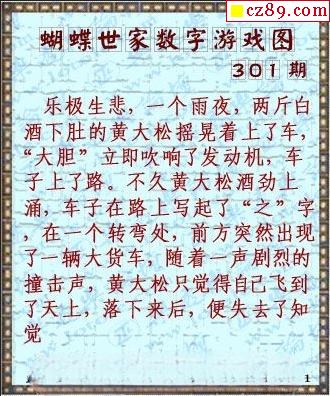 cz89.com
蝴蝶世家数字游戏图
301期
乐极生悲，一个雨夜，两斤白
酒下肚的黄大松摇晃着上了车，
“大胆”立即吹响了发动机，车
子上了路。不久黄大松酒劲上
涌，车子在路上写起了“之”字
，在一个转弯处，前方突然出现
了一辆大货车，随着一声剧烈的
撞击声，黄大松只觉得自己飞到
了天上，落下来后，便失去了知
觉
1